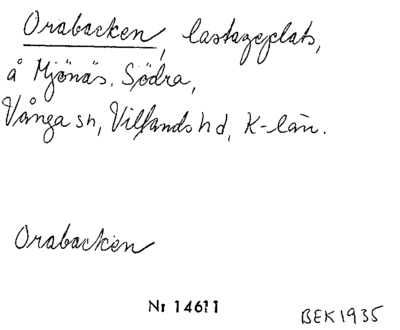 Orabacken, lastageplats,
å Mjönäs, Södra,
Vånga sn, Villands hd, K-län.
Orabacken
Nr 14611
BEK1935